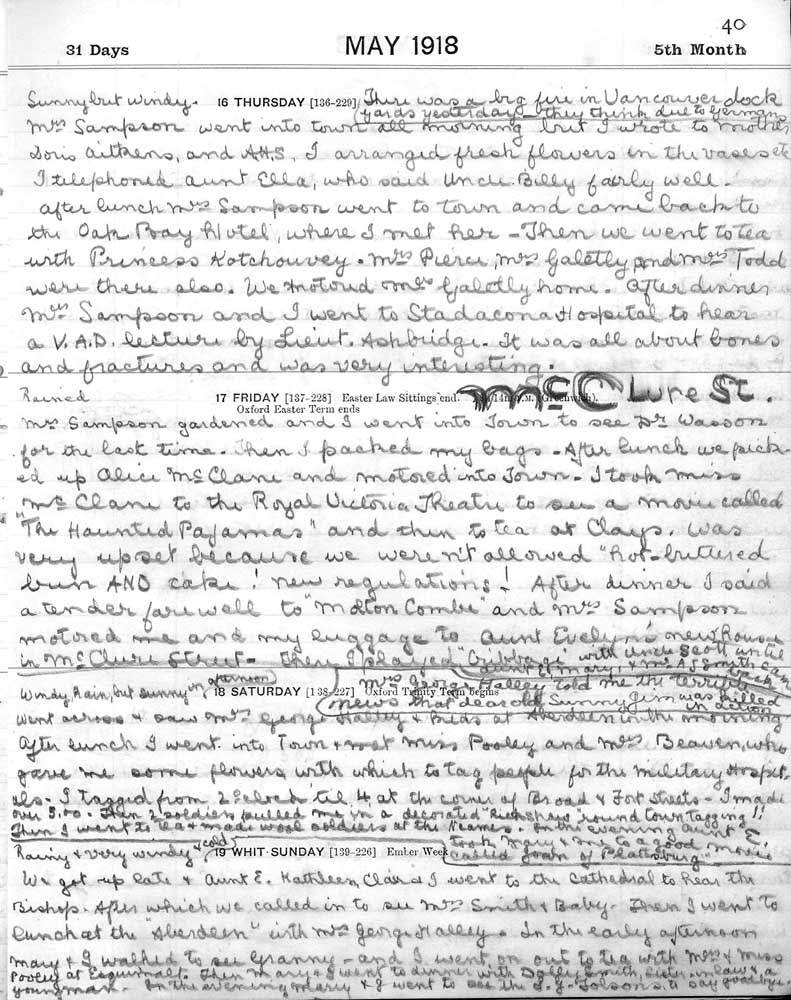 40
31 Days MAY 1918 5th Month
Sunny but windy. 16 THURSDAY [136-229] There was a big fire in Vancouver dock
yards yesterday - they think due to Germans
Mrs Sampson went into town all morning but I wrote to Mother
Doris Aitkens, and AHS, I arranged fresh flowers in the vases etc
I telephoned Aunt Ella, who said Uncle Billy fairly well.
After lunch Mrs Sampson went to town and came back to
the Oak Bay Hotel, where I met her - Then we went to tea
with Princess Kotchouvey. Mrs Pierce, Mrs Galetly and Mrs Todd
were there also. We motored Mrs Galetly home. After dinner
Mrs Sampson and I went to Stadacona Hospital to hear
a V.A.D. lecture by Lieut. Ashbridge. It was all about bones
and fractures and was very interesting.
Rained 17 FRIDAY [137-228] Easter Law Sittings end. McClure St.
Oxford Easter Term ends
Mrs Sampson gardened and I went into Town to see Dr Wasson
for the last time. Then I packed my bags - After lunch we pick-
ed up Alice McClane and motored into Town - I took Miss
McClane to the Royal Victoria Theatre to see a movie called
"The Haunted Pajamas" and then to tea at Clays. Was
very upset because we weren't allowed "hot-buttered
bun AND cake! new regulations! After dinner I said
a tender farewell to "Molton Combe" and Mrs Sampson
motored me and my luggage to Aunt Evelyn's new house
in McClure Street - then I played "Cribbage" with Uncle Scott until
Aunt E, Mary, & Mrs AJ Smith came back
Windy, Rain, but sunny in afternoon 18 SATURDAY [138-227] Oxford Trinity Term begins
Mrs George Halley told me the terrible
news that dear old Sunny Jim was killed
in action
Went across & saw Mrs George Halley & Kids at Aberdeen in the morning
After lunch I went into Town & met Miss Pooley and Mrs Beaven, who
gave me some flowers with which to tag people for the Military Hospit-
als - I tagged from 2 o'clock 'til 4 at the corner of Broad & Fort Streets - I made
over $.50. Then 2 soldiers pulled me in a decorated "Rickshaw" round town tagging!!
Then I went to tea & made wool soldiers at the In the evening Aunt E.
took Mary & me to a good movie
called "Joan of Plattsburg"
Rainy & very windy & cold 19 WHIT SUNDAY [139-226] Ember Week
We got up late & Aunt E. Kathleen, Clair & I went to the Cathedral to hear the
Bishop. After which we called in to see Mrs Smith & Baby. Then I went to
lunch at the "Aberdeen" with Mrs George Halley. In the early afternoon
Mary & I walked to see Granny - and I went on out to tea with Mrs & Miss
Pooley at Esquimalt. Then Mary & I went to dinner with Dolley Smith, sister-in-law & a
young man. In the evening Mary & I went to see the Folsons to say goodbye.